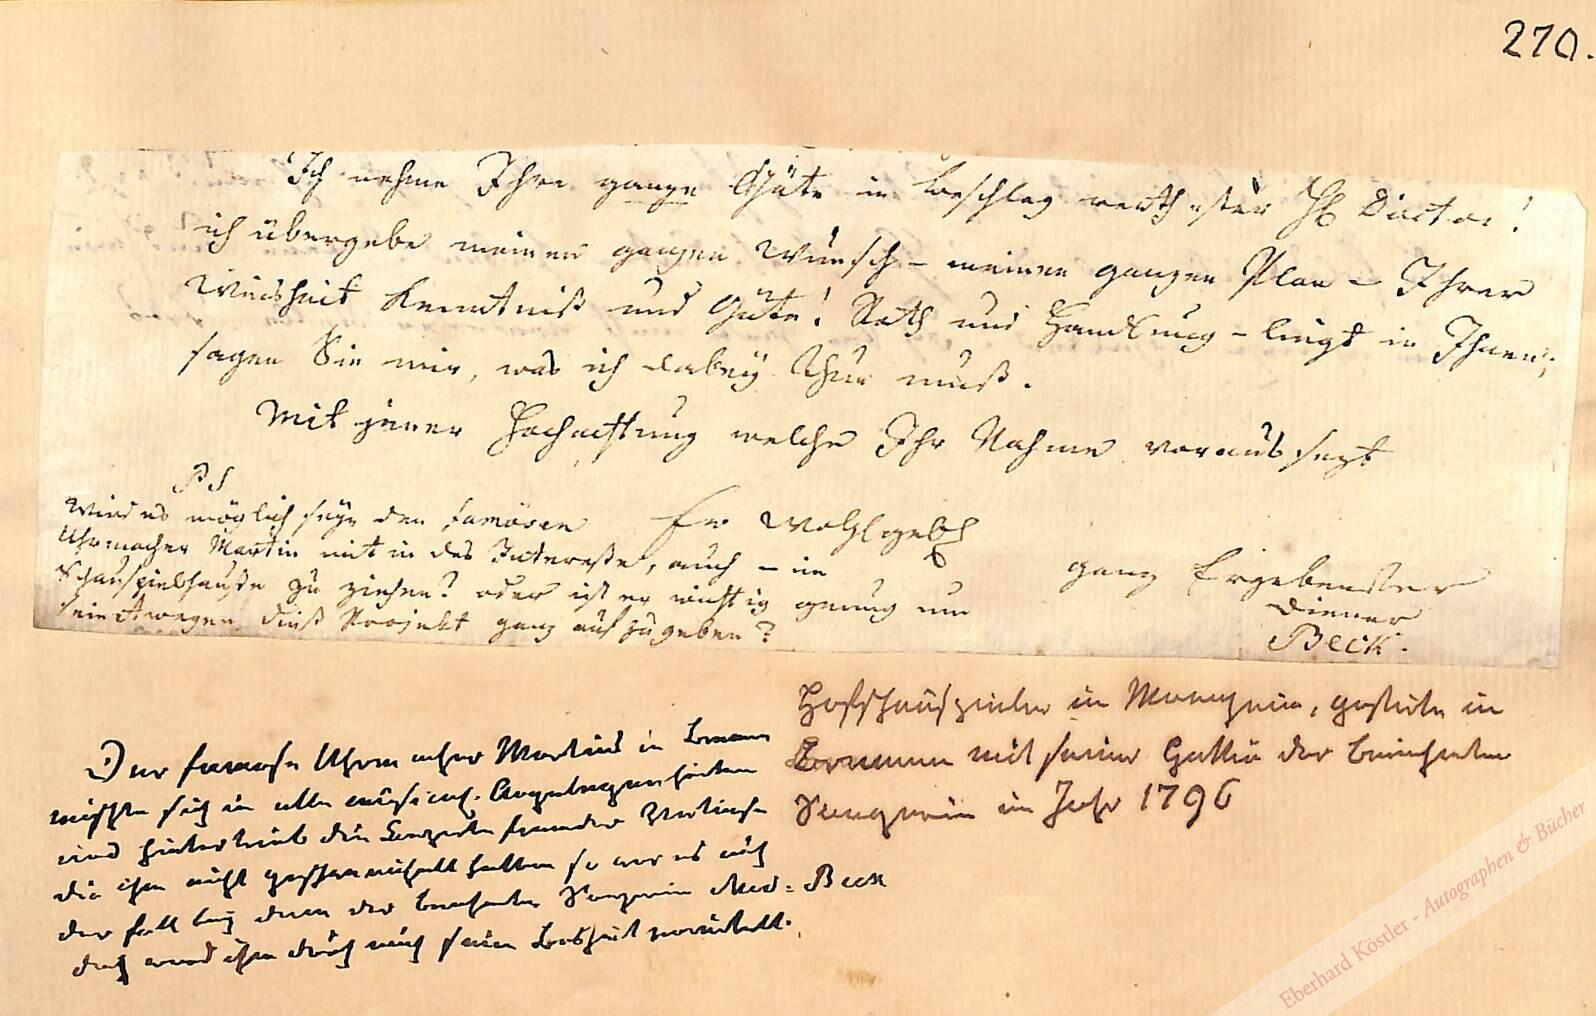 270.
Ich nehme Ihre ganze Güte in Beschlag werthester H. Doctor!
ich übergebe meinen ganzen Wunsch – meinen ganzen Plan – Ihrer
Weisheit Kenntniß und Güte! Rath und Handlung – liegt in Ihnen;
sagen Sie mir, was ich dabey thun muß.
Mit jener Hochachtung welche Ihr Nahme voraus sezt
PS
Wird es möglich seyn den famösen
Uhrmacher Martin mit in das Interesse, auch – im
Schauspielhauße zu ziehen? oder ist er wichtig genug um
seinetwegen dieß Projekt ganz aufzugeben?
Ew Wohlgeb
ganz Ergebenster
Diener
Beck.
Hofschauspieler in Manheim, gastirte in
Bremen mit seiner Gattin der berühmten
Sängerin im Jahr 1796
Der famose Uhrmacher Martius in Bremen
mischte sich in alle musical. Angelegenheiten
und hintertrieb die Conzerte fremder Virtuose
die ihm nicht geschmeichelt hatten so war es auch
der Fall bey der berühmten Sängerin Mad. Beck
doch ward ihm durch mich seine Bosheit vereitelt.
Eberhard Köstler - Autographen & Bücher